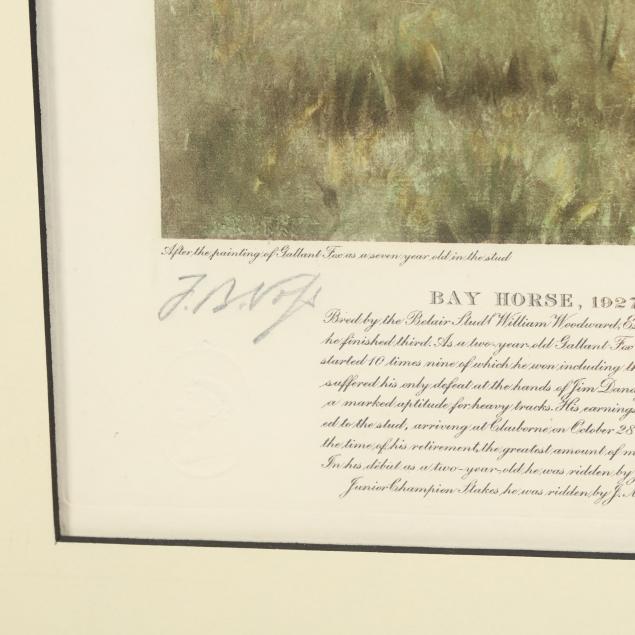 After the painting of Gallant Fox as a seven year old in the stud
F. B. Voss
BAY HORSE, 1927
Bred by the Belair Stud (William Woodward, Es
he finished third. As a two-year-old Gallant Fox
started 10 times nine of which he won including th
suffered his only defeat at the hands of Jim Dand
a marked aptitude for heavy tracks. His earnings
ed to the stud, arriving at Claiborne on October 28
the time of his retirement, the greatest amount of m
In his début as a two-year-old he was ridden by
Junior Champion Stakes, he was ridden by J. A